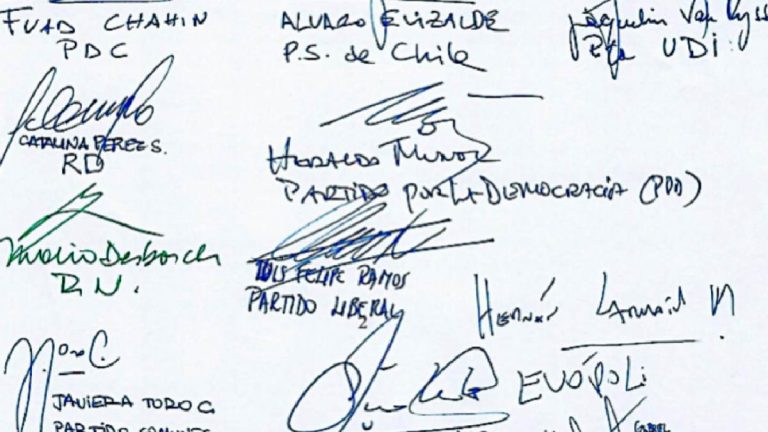 FUAD CHAHIN
PDC
ALVARO ELIZALDE
P.S. de Chile
Jaquelin Van Ryss
Pta UDI
CATALINA PEREZ S.
RD
HERALDO MUÑOZ
PARTIDO POR LA DEMOCRACIA (PPD)
Mario Desbordes
R.N.
LUIS FELIPE RAMOS
PARTIDO LIBERAL
HERNÁN LARRAÍN M
EVÓPOLI
JAVIERA TORO C
PARTIDO COMUNES